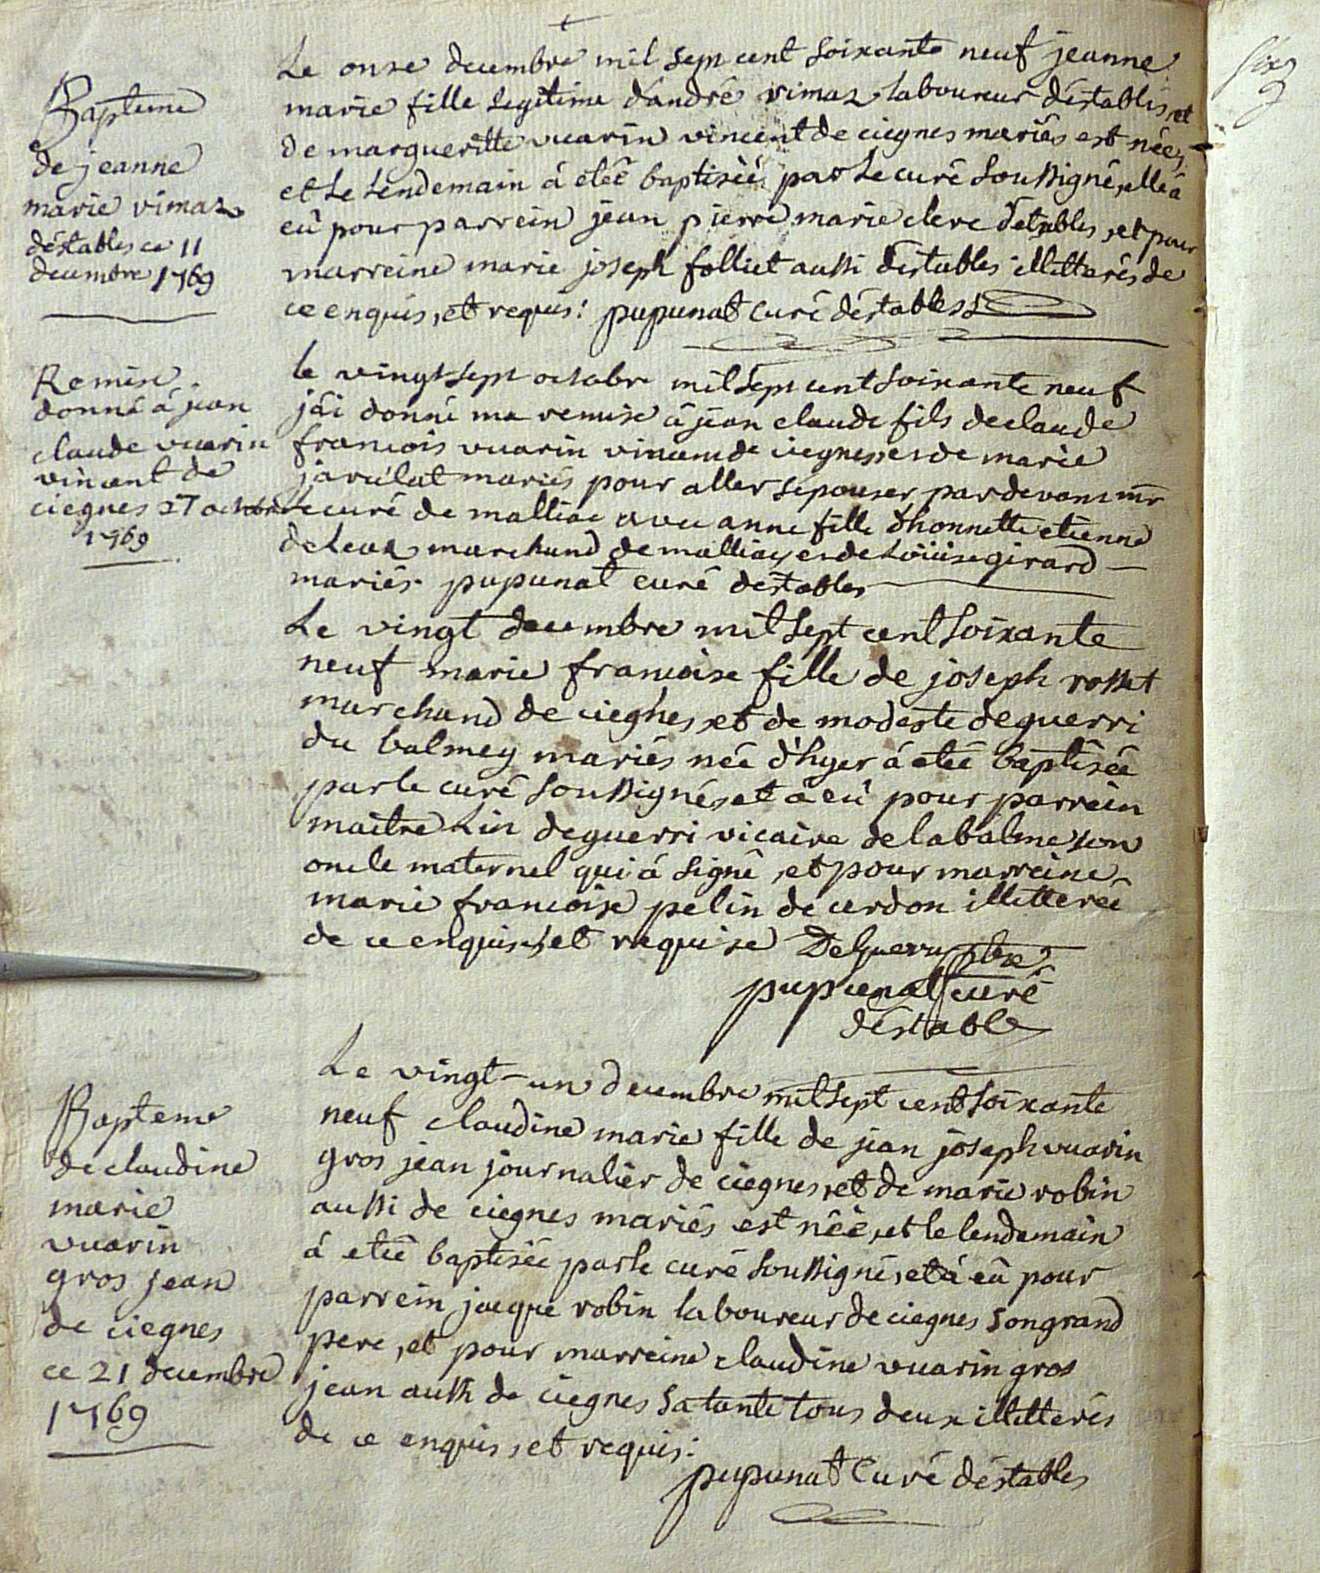 Bapteme
de jeanne
marie vimaz
déstables ce 11
decembre 1769
Le onze decembre mil sept cent soixante neuf jeanne
marie fille legitime d'andré vimaz laboureur déstables, et
de margueritte vuarin vincent de ciegnes mariés est née,
et le lendemain á eteé baptiseé par le curé soussigné, elle á
eû pour parrein jean pierre marie clerc détables, et pour
marreine marie joseph folliet aussi déstables illitterés de
ce enquis, et requis: pupunat curé déstables
Remise
donné á jean
claude vuarin
vincent de
ciegnes 27 octobre
1769
le vingt sept octobre mil sept cent soixante neuf
j'ai donné ma remise á jean claude fils de claude
francois vuarin vincent de ciegnes, et de marie
mariés pour aller sepouser pardevant mr
le curé de malliac avec anne fille d'honnette etienne
marchand de malliac, et de loüise girard
mariés. pupunat curé déstables
Le vingt decembre mil sept cent soixante
neuf marie francoise fille de joseph rosset
marchand de cieghes, et de modeste deguerri
du balmey mariés née d'hyer á eteé baptiseé
par le curé soussigné, et á eû pour parrein
maitre Lin deguerri vicaire de labalme son
oncle maternel qui á signé, et pour marreine
marie francoise pelin de cerdon illitereé
de ce enquise, et requise Deguerri ptre
pupunat curé
déstables
Bapteme
de claudine
marie
vuarin
gros jean
de ciegnes
ce 21 decembre
1769
Le vingt-un decembre mil sept cent soixante
neuf claudine marie fille de jean joseph vuarin
gros jean journalier de ciegnes, et de marie robin
aussi de ciegnes mariés est néé, et le lendemain
á eteé baptiseé par le curé soussigné, et á eû pour
parrein jacque robin laboureur de ciegnes son grand
pere, et pour marreine claudine vuarin gros
jean aussi de ciegnes sa tante tous deux illitterés
de ce enquis, et requis:
pupunat curé déstables